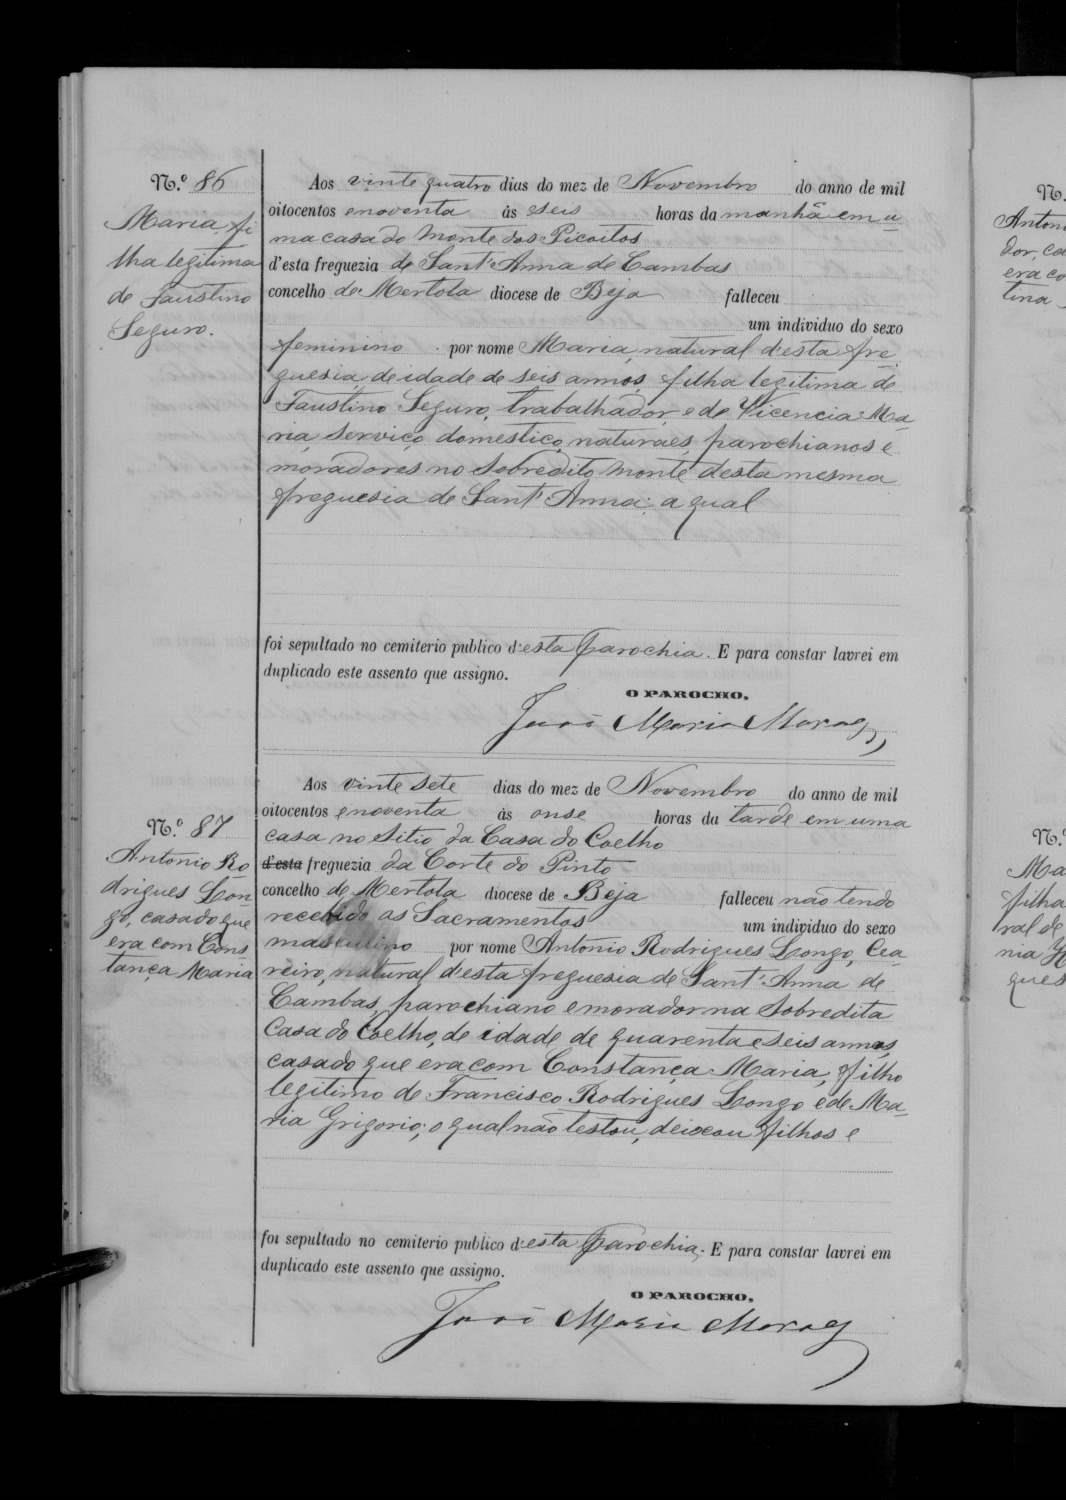 N.º 86
Maria, fi
lha legitima
de Faustino
Seguro.
Aos vinte quatro dias do mez de Novembro do anno de mil
oitocentos e noventa ás seis horas da manhã em u-
ma casa do Monte dos Picoitos
d'esta freguezia de Sant'Anna de Cambas
concelho de Mertola diocese de Beja falleceu
um individuo do sexo
feminino por nome Maria, natural d'esta fre-
guesia, de idade de seis annos, filha legitima de
Faustino Seguro, trabalhador, e de Vicencia Ma-
ria, serviço domestico, naturaes, parochianos e
moradores no sobredito Monte desta mesma
freguesia de Sant'Anna; a qual
foi sepultado no cemiterio publico d'esta Parochia. E para constar lavrei em
duplicado este assento que assigno.
O PAROCHO,
José Maria
N.º 87
Antonio Ro
drigues Lon-
go, casado que
era com Cons-
tança Maria
Aos vinte sete dias do mez de Novembro do anno de mil
oitocentos e noventa ás onse horas da tarde em uma
casa no Sitio da Casa do Coelho
d'esta freguezia da Corte do Pinto
concelho de Mertola diocese de Beja falleceu não tendo
recebido os Sacramentos um individuo do sexo
masculino por nome Antonio Rodrigues Longo, Cea-
reiro, natural d'esta freguesia de Sant'Anna de
Cambas, parochiano e morador na sobredita
Casa do Coelho, de idade de quarenta e seis annos,
casado que era com Constança Maria, filho
legitimo de Francisco Rodrigues Longo e de Ma-
ria Grigorio; o qual não testou, deixou filhos e
foi sepultado no cemiterio publico d'esta Parochia. E para constar lavrei em
duplicado este assento que assigno.
O PAROCHO,
José Maria
N.
Antoni
dor, ca
era co
tina
N.º
Ma
filha
ral de
nia
ques